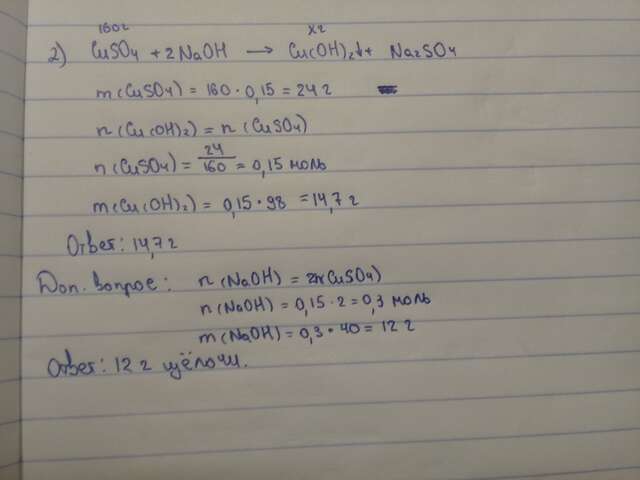 160г хг
2) CuSO4 + 2NaOH → Cu(OH)2↓ + Na2SO4
m(CuSO4) = 160 · 0,15 = 24 г
n(Cu(OH)2) = n(CuSO4)
n(CuSO4) = 24/160 = 0,15 моль
m(Cu(OH)2) = 0,15 · 98 = 14,7 г
Ответ: 14,7 г
Доп. вопрос: n(NaOH) = 2n(CuSO4)
n(NaOH) = 0,15 · 2 = 0,3 моль
m(NaOH) = 0,3 · 40 = 12 г
Ответ: 12 г щёлочи.